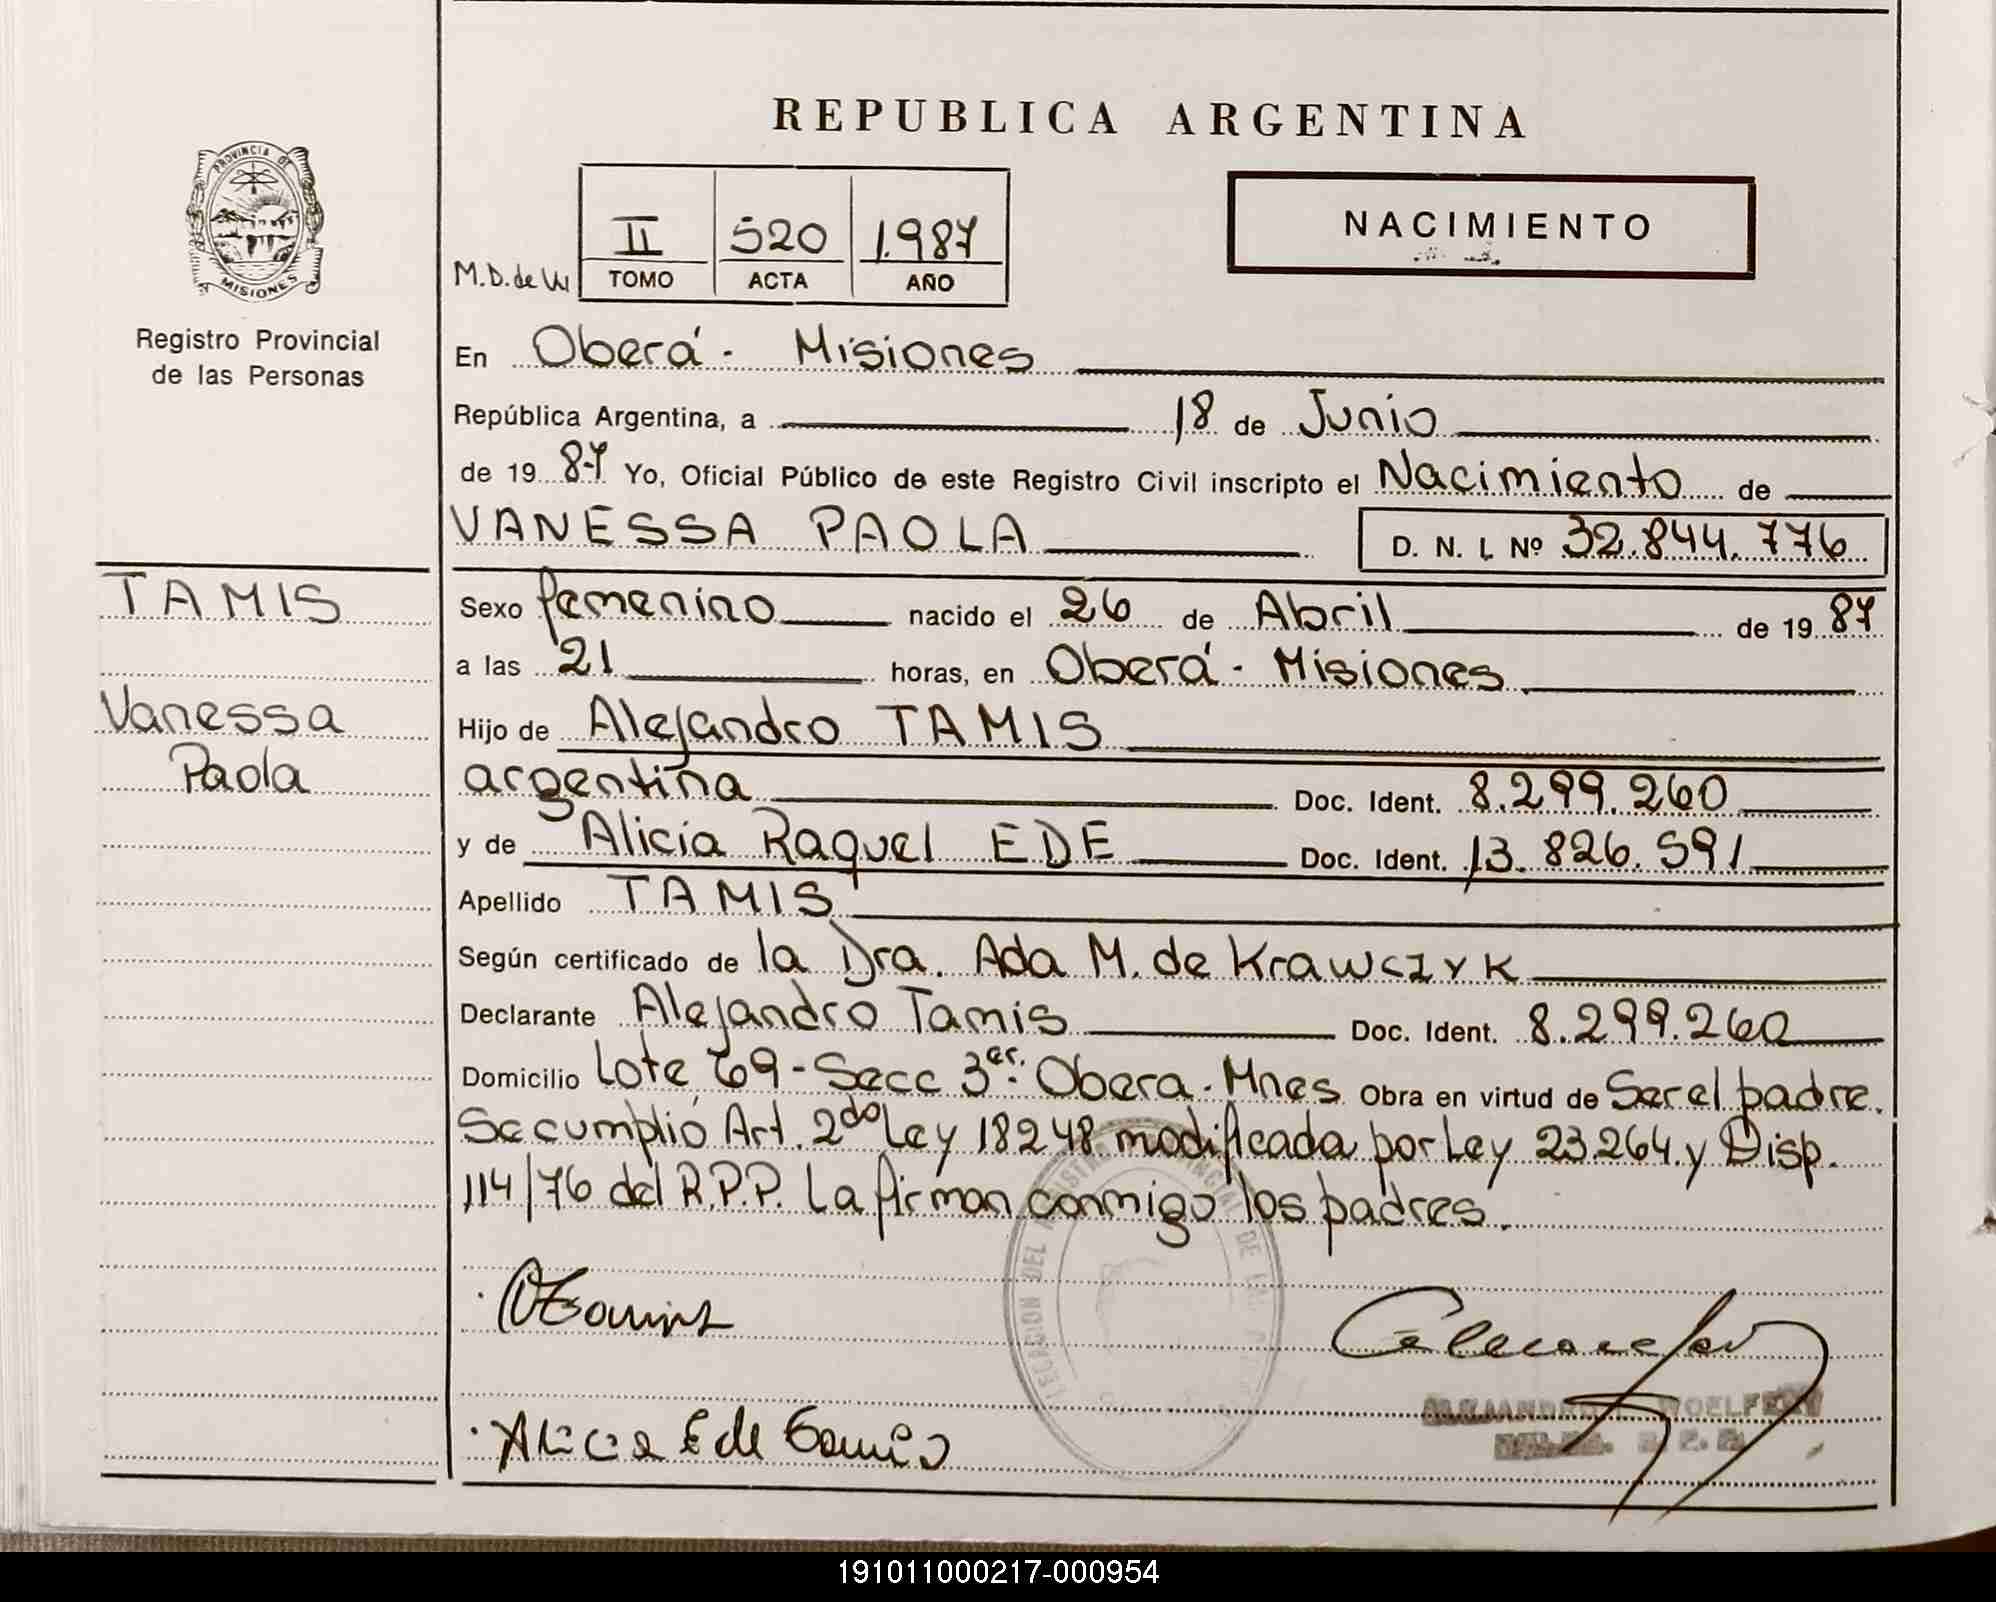 REPUBLICA ARGENTINA
PROVINCIA DE
MISIONES
Registro Provincial
de las Personas
NACIMIENTO
II 520 1.987
M.D. de
TOMO ACTA AÑO
En Oberá - Misiones
República Argentina, a 18 de Junio
de 19 87 Yo, Oficial Público de este Registro Civil inscripto el Nacimiento de
VANESSA PAOLA D. N. I. Nº 32.844.776
TAMIS
Vanessa
Paola
Sexo femenino nacido el 26 de Abril de 19 87
a las 21 horas, en Oberá - Misiones
Hijo de Alejandro TAMIS
argentina Doc. Ident. 8.299.260
y de Alicia Raquel EDE Doc. Ident. 13.826.591
Apellido TAMIS
Según certificado de la Dra. Ada M. de Krawczyk
Declarante Alejandro Tamis Doc. Ident. 8.299.260
Domicilio Lote 69 - Secc 3er. Obera - Mnes Obra en virtud de Ser el padre.
Se cumplió Art. 2do Ley 18248 modificada por Ley 23.264 y Disp.
114/76 del R.P.P. La firman conmigo los padres.
Alicia E de Tamis
191011000217-000954